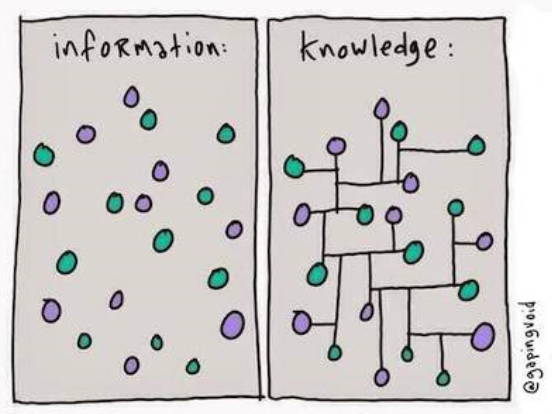 information:
knowledge:
@gapingvoid